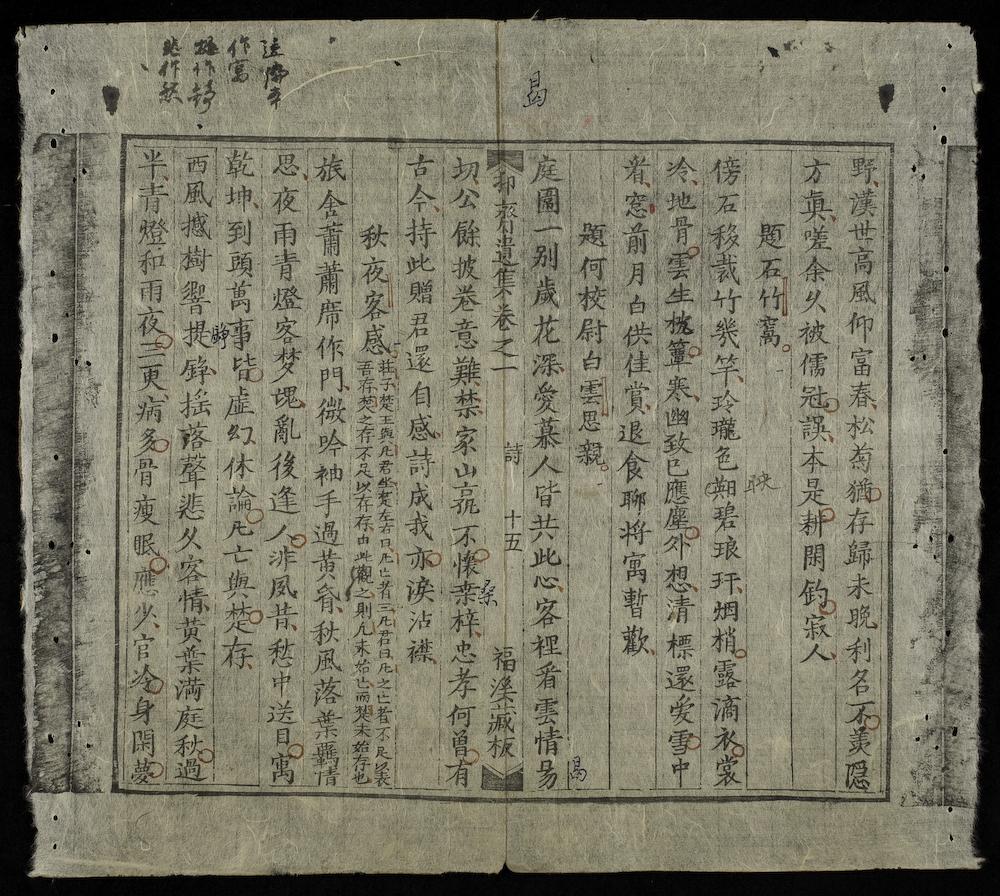 曷
野漢世高風仰富春松菊猶存歸未晚利名不羨隱
方真嗟余久被儒冠誤本是耕閑釣寂人
題石竹窩
傍石移栽竹幾竿玲瓏色碧琅玕烟梢露滴衣裳
映
冷地骨雲生枕簟寒幽致已應塵外想清標還愛雪中
看窓前月白供佳賞退食聊將寓暫歡
題何校尉白雲思親
庭闈一别歲花深愛慕人皆共此心客裡看雲情曷
曷
抑齋遺集卷之一 詩 十五 福溪藏板
切公餘披卷意難禁家山不懷桒梓忠孝何曾有
桑
古今持此贈君還自感詩成我亦淚沾襟
秋夜客感
莊子楚王與凡君坐楚左右曰凡亡者三凡君曰凡之亡者不足以喪
吾存楚之存不足以存存由此觀之則凡未始亡而楚未始存也
旅舍蕭蕭席作門微吟袖手過黄昏秋風落葉羈情
思夜雨青燈客梦魂亂後逢人非夙昔愁中送目寓
乾坤到頭萬事皆虛幻休論凡亡與楚存
西風撼樹響提錚摇落聲悲久客情黄葉満庭秋過
半青燈和雨夜三更病多骨瘦眠應少官冷身閑夢